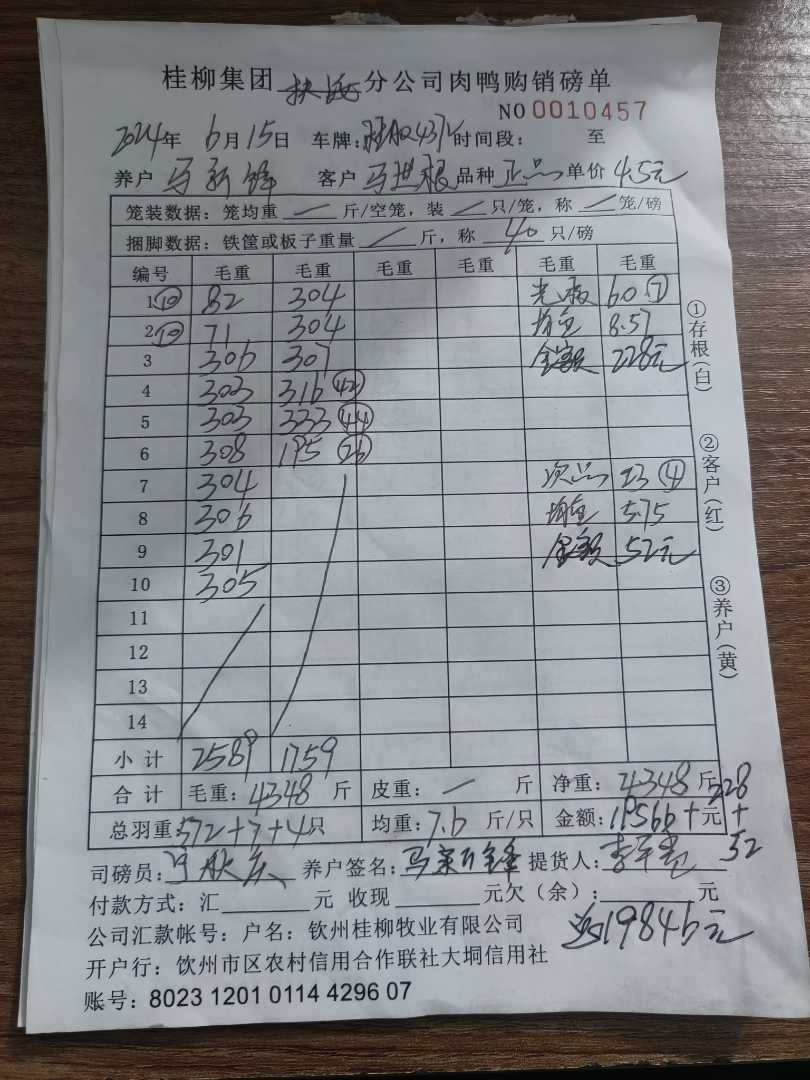 桂柳集团 扶绥 分公司肉鸭购销磅单
NO 0010457
2024年 6月15日 车牌: 时间段: 至
养户 马新锋 客户 马世根 品种 正品 单价 4.5元
笼装数据: 笼均重 — 斤/空笼, 装 — 只/笼, 称 — 笼/磅
捆脚数据: 铁筐或板子重量 — 斤, 称 40 只/磅
编号 毛重 毛重 毛重 毛重 毛重 毛重
1 ⑩ 82 304 光板 60 ⑦
2 ⑩ 71 304 均重 8.57
3 306 307 金额 228元
4 303 316 ㊷
5 303 333 ㊹
6 308 195 ㉖
7 304 次品 23 ④
8 306 均重 5.75
9 301 金额 52元
10 305
11
12
13
14
小计 2589 1759
合计 毛重: 4348 斤 皮重: — 斤 净重: 4348 斤
总羽重: 572+7+4只 均重: 7.6 斤/只 金额: 19566+元 228+52
司磅员: 养户签名: 马新锋 提货人:
付款方式: 汇 元 收现 元欠(余): 元
19846元
公司汇款帐号: 户名: 钦州桂柳牧业有限公司
开户行: 钦州市区农村信用合作联社大垌信用社
账号: 8023 1201 0114 4296 07
①存根(白)
②客户(红)
③养户(黄)